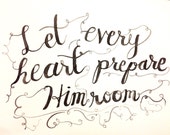 Let every
heart prepare
Him room